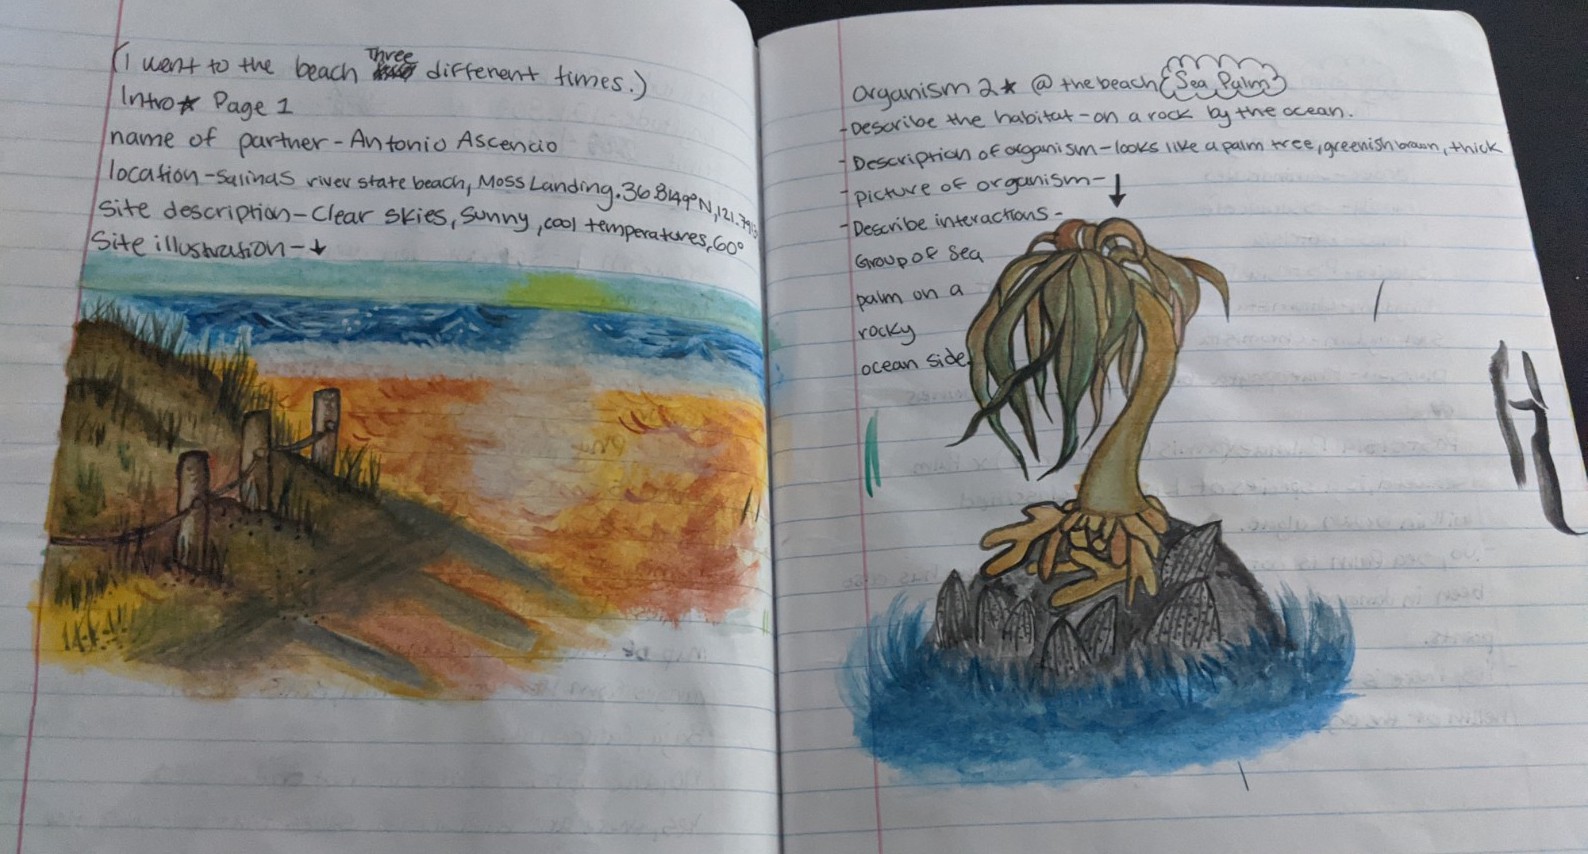 (I went to the beach Three different times.)
Intro★ Page 1
name of partner - Antonio Ascencio
location - Salinas river state beach, Moss Landing. 36.8149°N,
Site description - Clear skies, Sunny, cool temperatures, 60°
Site illustration - ↓
organism 2★ @ the beach (Sea Palm)
- Describe the habitat - on a rock by the ocean.
- Description of organism - looks like a palm tree, greenish brown, thick
- picture of organism - ↓
- Describe interactions -
Group of Sea
palm on a
rocky
ocean side.